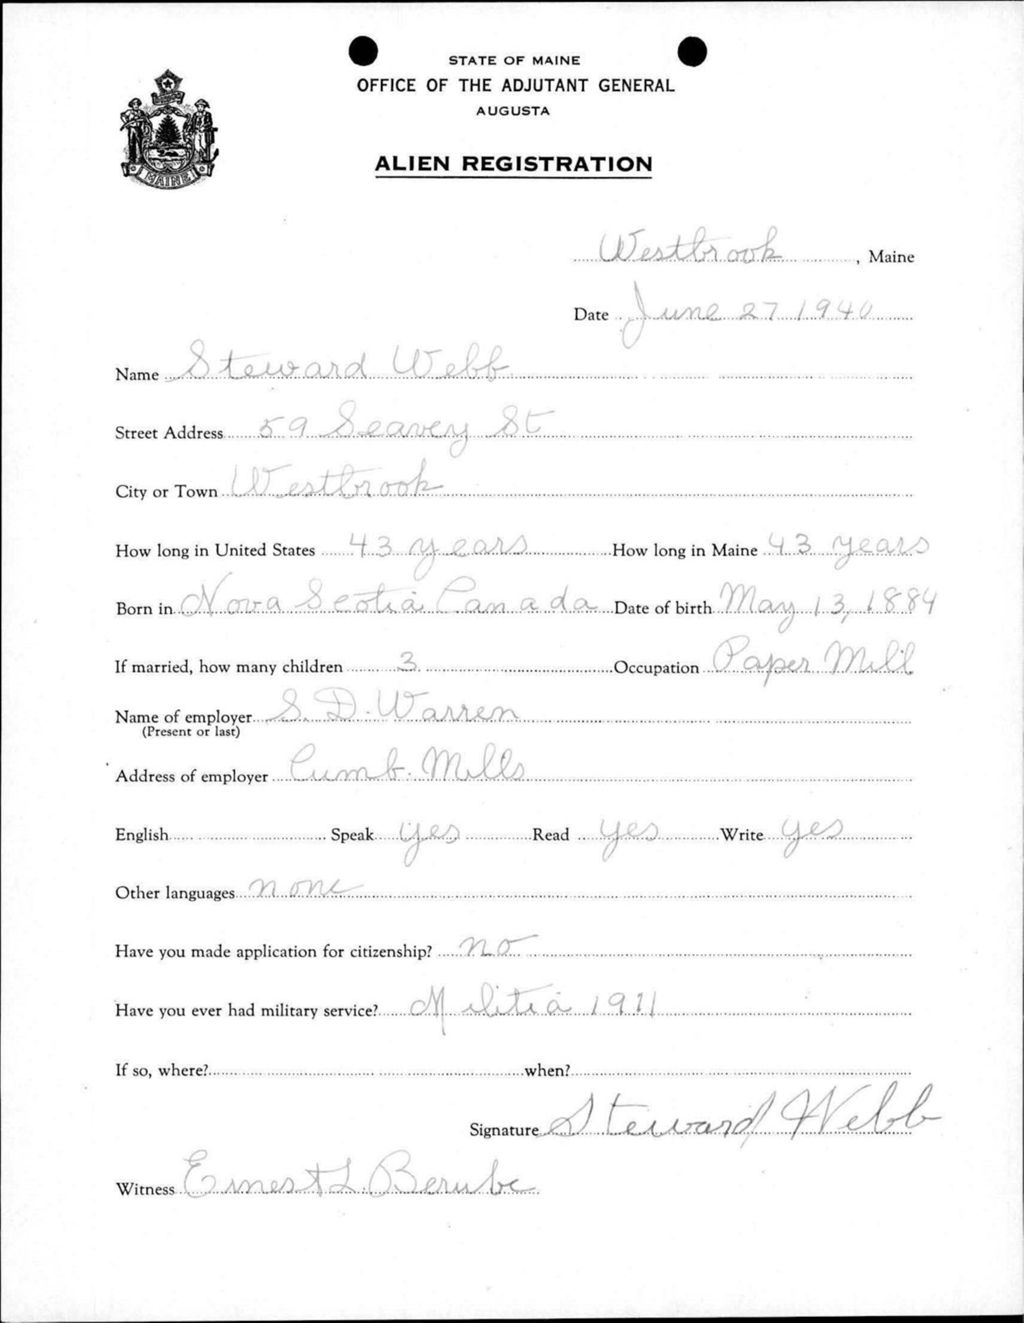 STATE OF MAINE
OFFICE OF THE ADJUTANT GENERAL
AUGUSTA
ALIEN REGISTRATION
MAINE
Westbrook, Maine
Date June 27 1940
Name Steward Webb
Street Address 59 Seavey St
City or Town Westbrook
How long in United States 43 years How long in Maine 43 years
Born in Nova Scotia Canada Date of birth May 13, 1884
If married, how many children 3 Occupation Paper Mill
Name of employer S. D. Warren
(Present or last)
Address of employer Cumb. Mills
English Speak yes Read yes Write yes
Other languages none
Have you made application for citizenship? no
Have you ever had military service? Militia 1911
If so, where? when?
Signature Steward Webb
Witness Ernest L. Berube